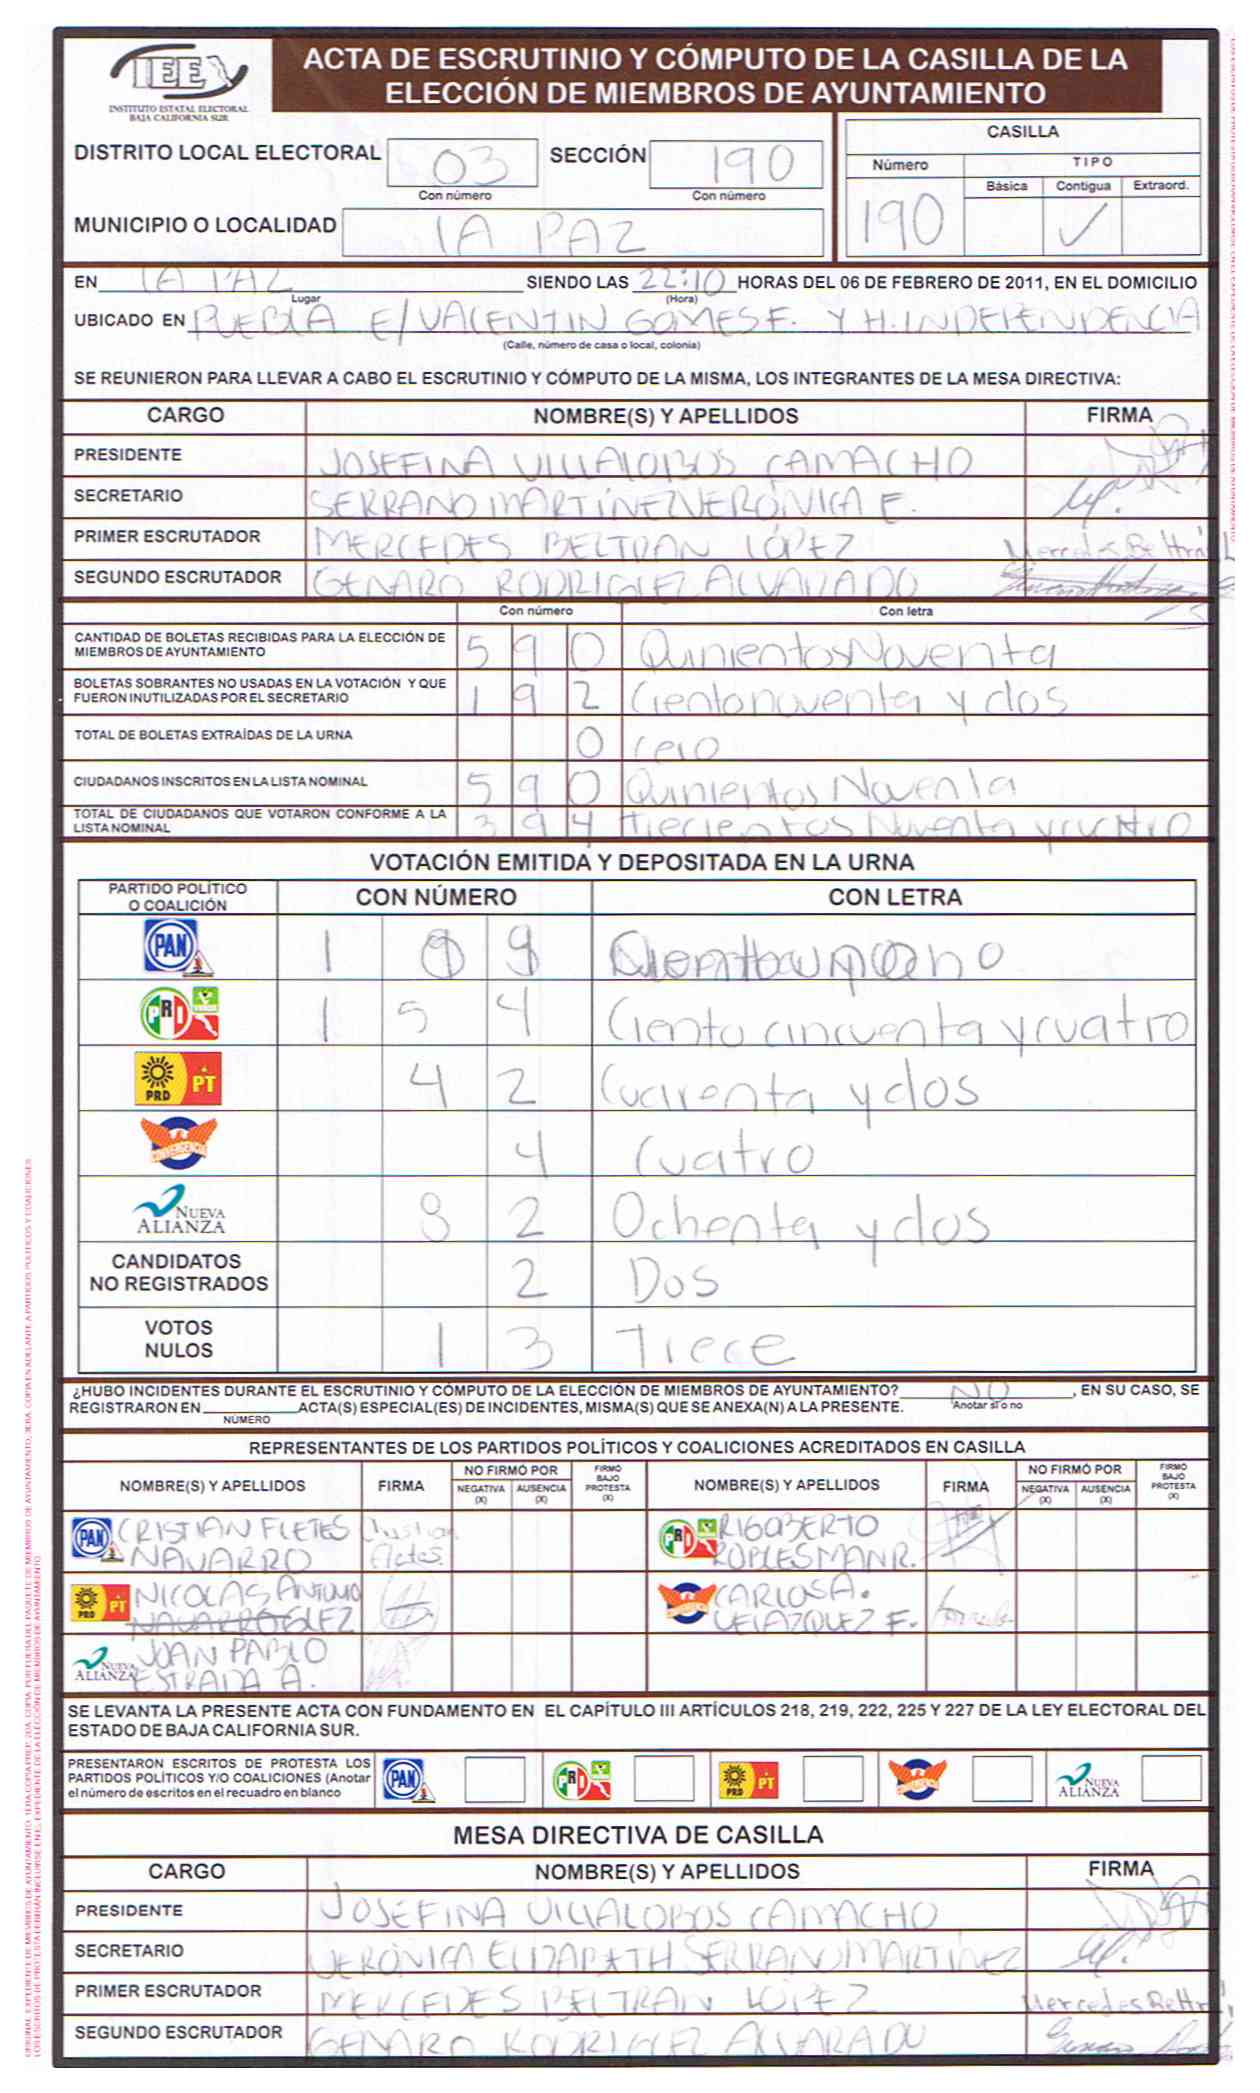 IEE
INSTITUTO ESTATAL ELECTORAL
BAJA CALIFORNIA SUR
ACTA DE ESCRUTINIO Y CÓMPUTO DE LA CASILLA DE LA
ELECCIÓN DE MIEMBROS DE AYUNTAMIENTO
DISTRITO LOCAL ELECTORAL 03 SECCIÓN 190
Con número Con número
MUNICIPIO O LOCALIDAD LA PAZ
CASILLA
Número TIPO
Básica Contigua Extraord.
190 ✓
EN LA PAZ SIENDO LAS 22:10 HORAS DEL 06 DE FEBRERO DE 2011, EN EL DOMICILIO
Lugar (Hora)
UBICADO EN PUEBLA E/VALENTIN GOMES F. Y H. INDEPENDENCIA
(Calle, número de casa o local, colonia)
SE REUNIERON PARA LLEVAR A CABO EL ESCRUTINIO Y CÓMPUTO DE LA MISMA, LOS INTEGRANTES DE LA MESA DIRECTIVA:
CARGO NOMBRE(S) Y APELLIDOS FIRMA
PRESIDENTE JOSEFINA VILLALOBOS CAMACHO
SECRETARIO SERRANO MARTÍNEZ VERÓNICA E.
PRIMER ESCRUTADOR MERCEDES BELTRAN LÓPEZ Mercedes Beltrán L
SEGUNDO ESCRUTADOR GENARO RODRIGUEZ ALVARADO
Con número Con letra
CANTIDAD DE BOLETAS RECIBIDAS PARA LA ELECCIÓN DE
MIEMBROS DE AYUNTAMIENTO 5 9 0 Quinientos Noventa
BOLETAS SOBRANTES NO USADAS EN LA VOTACIÓN Y QUE
FUERON INUTILIZADAS POR EL SECRETARIO 1 9 2 Ciento noventa y dos
TOTAL DE BOLETAS EXTRAÍDAS DE LA URNA 0 cero
CIUDADANOS INSCRITOS EN LA LISTA NOMINAL 5 9 0 Quinientos Noventa
TOTAL DE CIUDADANOS QUE VOTARON CONFORME A LA
LISTA NOMINAL 3 9 4 Trecientos Noventa y cuatro
VOTACIÓN EMITIDA Y DEPOSITADA EN LA URNA
PARTIDO POLÍTICO
O COALICIÓN CON NÚMERO CON LETRA
PAN 1
PRI VERDE 1 5 4 Ciento cincuenta y cuatro
PRD PT 4 2 Cuarenta y dos
CONVERGENCIA 4 Cuatro
NUEVA ALIANZA 8 2 Ochenta y dos
CANDIDATOS
NO REGISTRADOS 2 Dos
VOTOS
NULOS 1 3 Trece
¿HUBO INCIDENTES DURANTE EL ESCRUTINIO Y CÓMPUTO DE LA ELECCIÓN DE MIEMBROS DE AYUNTAMIENTO? NO , EN SU CASO, SE
REGISTRARON EN ACTA(S) ESPECIAL(ES) DE INCIDENTES, MISMA(S) QUE SE ANEXA(N) A LA PRESENTE. Anotar sí o no
NÚMERO
REPRESENTANTES DE LOS PARTIDOS POLÍTICOS Y COALICIONES ACREDITADOS EN CASILLA
NOMBRE(S) Y APELLIDOS FIRMA NO FIRMÓ POR NEGATIVA (X) AUSENCIA (X) FIRMÓ BAJO PROTESTA (X) NOMBRE(S) Y APELLIDOS FIRMA NO FIRMÓ POR NEGATIVA (X) AUSENCIA (X) FIRMÓ BAJO PROTESTA (X)
PAN CRISTIAN FLETES Cristian PRI RIGOBERTO
NAVARRO Fletes. ROBLES MANR.
PRD PT NICOLAS ANTONIO CONVERGENCIA CARLOS A.
NAVARRO GLEZ VELAZQUEZ F.
NUEVA ALIANZA JOAN PABLO
ESTRADA A.
SE LEVANTA LA PRESENTE ACTA CON FUNDAMENTO EN EL CAPÍTULO III ARTÍCULOS 218, 219, 222, 225 Y 227 DE LA LEY ELECTORAL DEL
ESTADO DE BAJA CALIFORNIA SUR.
PRESENTARON ESCRITOS DE PROTESTA LOS
PARTIDOS POLÍTICOS Y/O COALICIONES (Anotar
el número de escritos en el recuadro en blanco
PAN PRI PRD PT CONVERGENCIA NUEVA ALIANZA
MESA DIRECTIVA DE CASILLA
CARGO NOMBRE(S) Y APELLIDOS FIRMA
PRESIDENTE JOSEFINA VILLALOBOS CAMACHO
SECRETARIO VERÓNICA ELIZABETH SERRANO MARTÍNEZ
PRIMER ESCRUTADOR MERCEDES BELTRAN LOPEZ Mercedes Beltrá
SEGUNDO ESCRUTADOR GENARO RODRIGUEZ ALVARADO